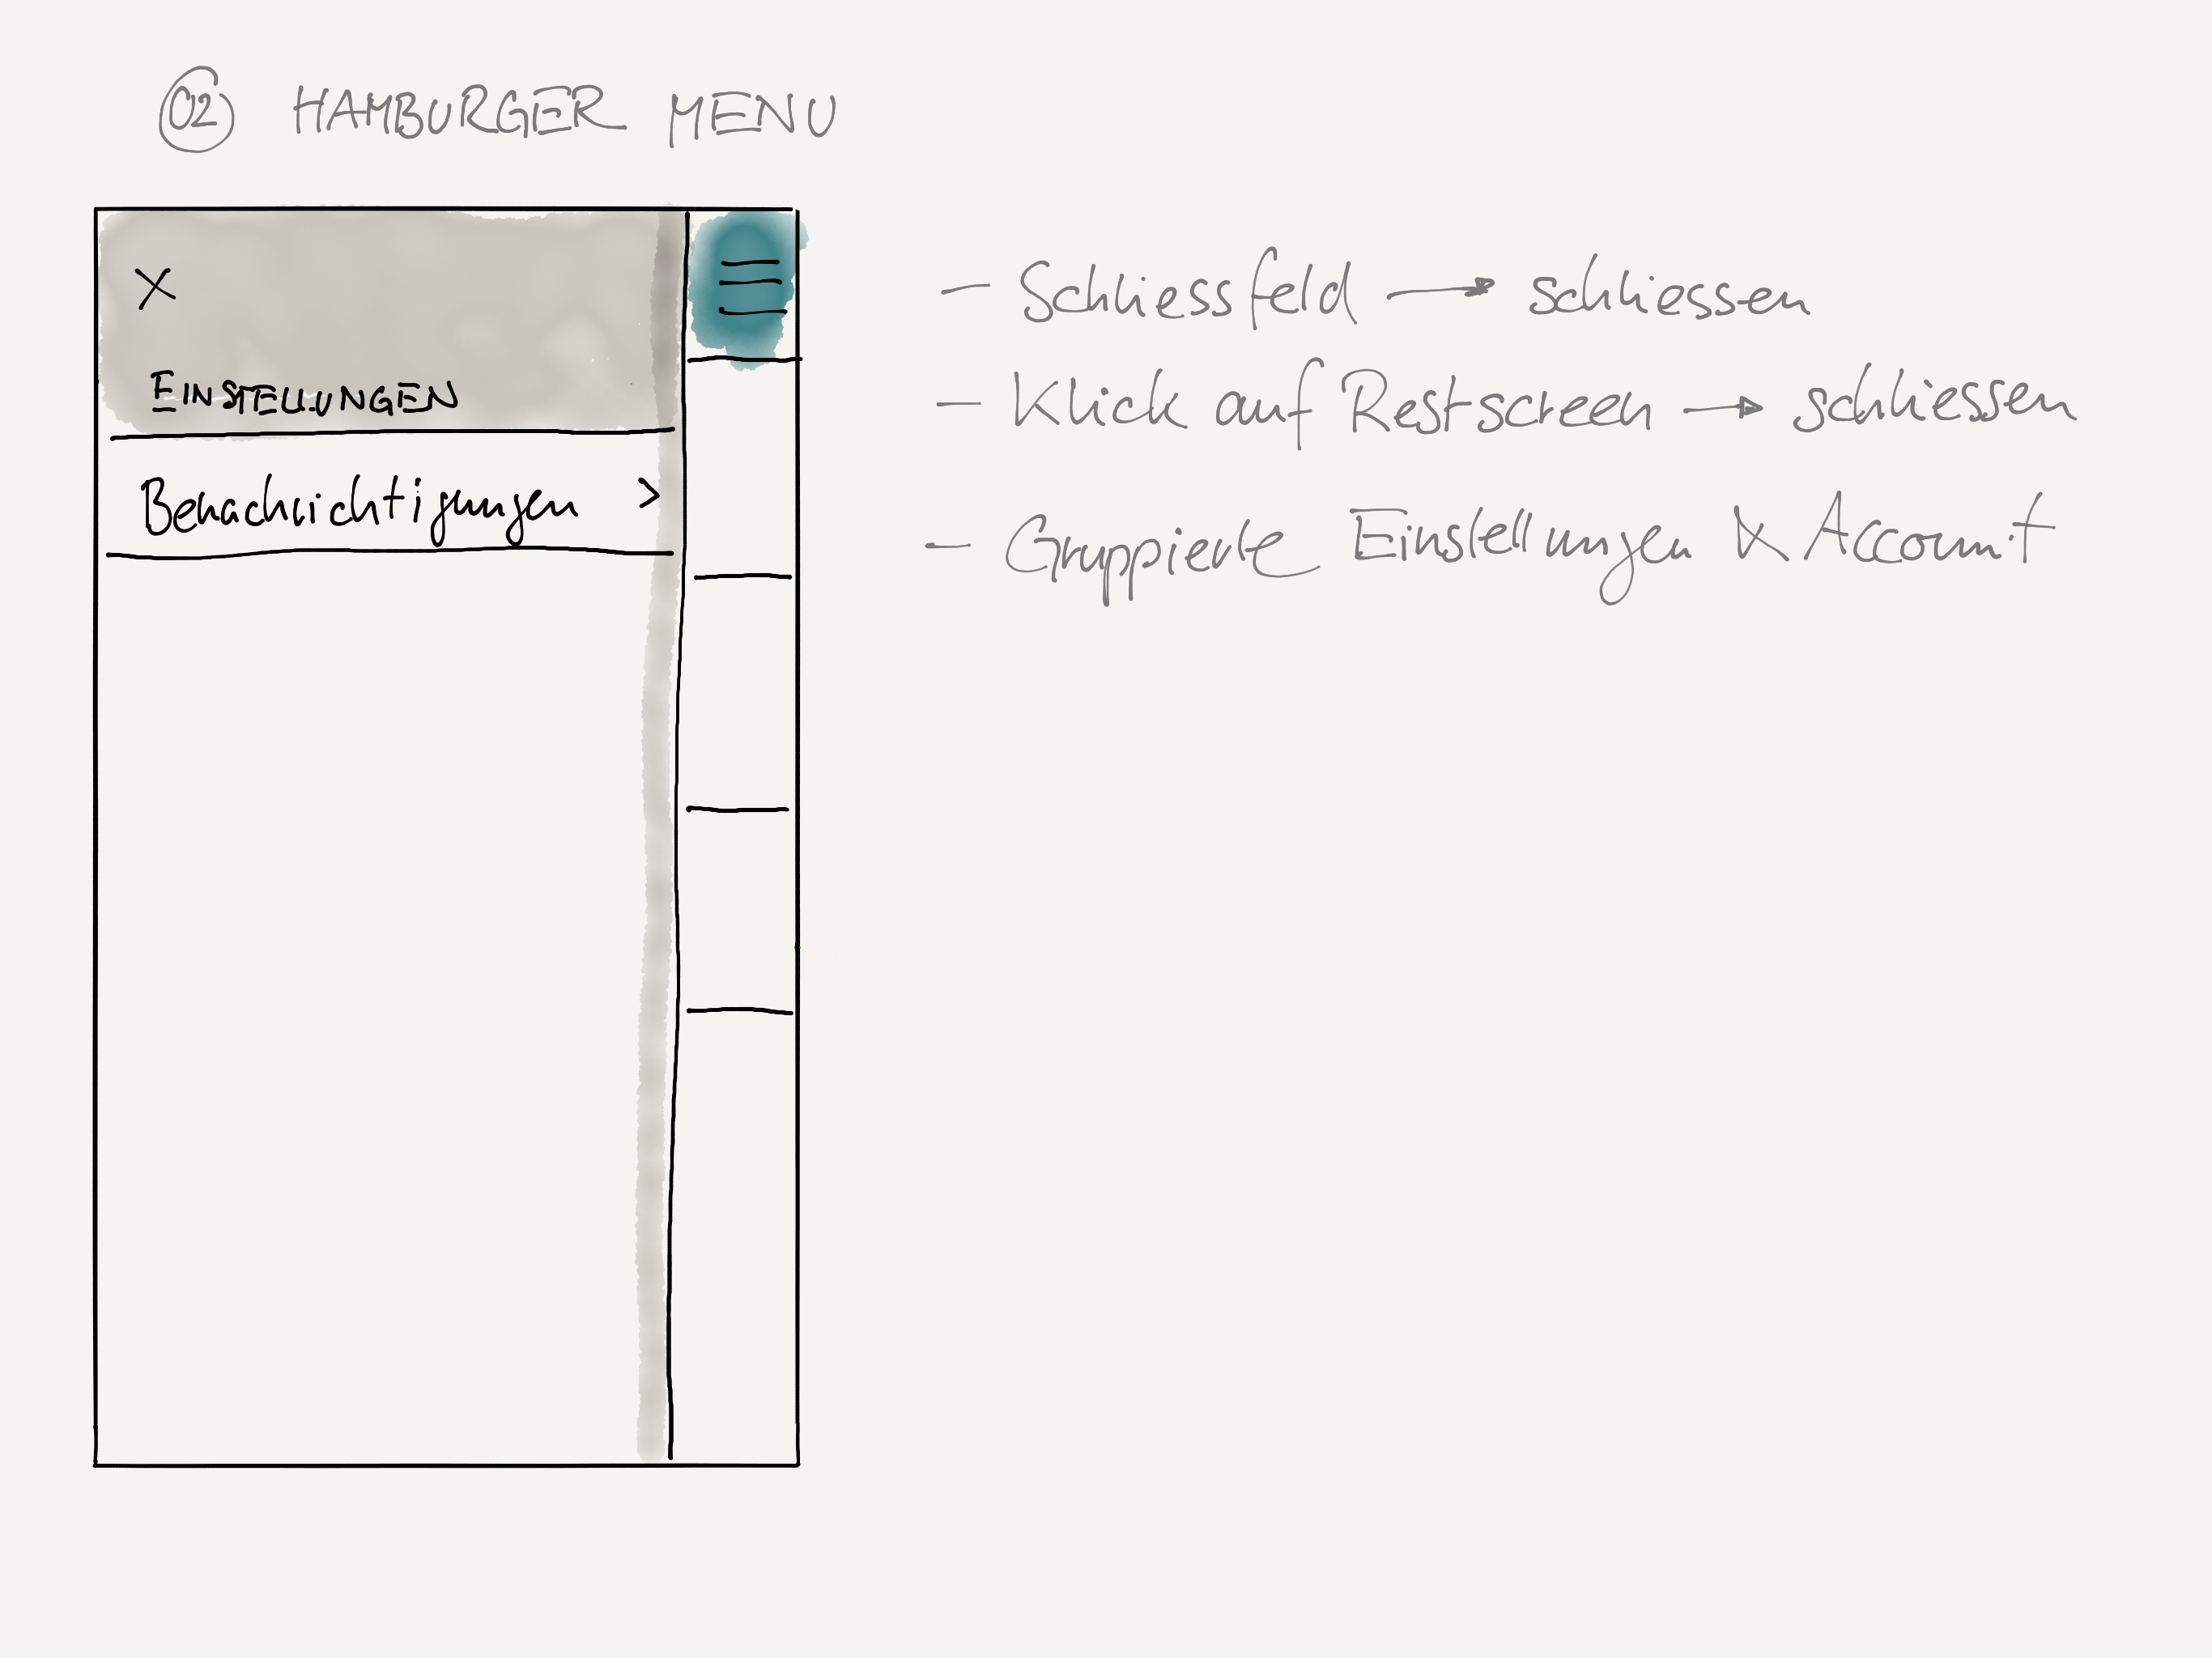 02 HAMBURGER MENU
X
EINSTELLUNGEN
Benachrichtigungen >
- Schliessfeld → schliessen
- Klick auf Restscreen → schliessen
- Gruppierte Einstellungen & Account